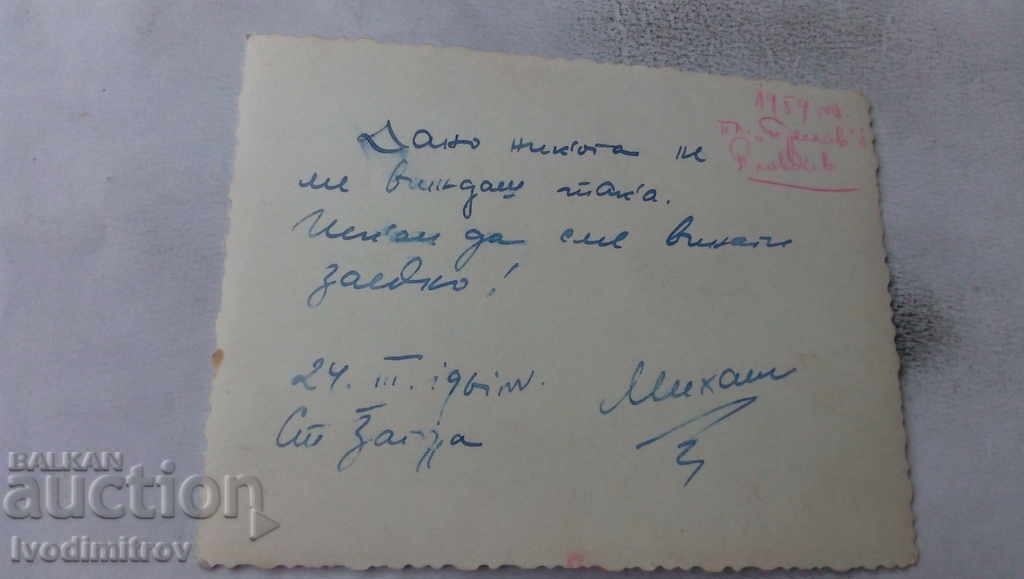 1959 го.
Дано никога не
ме виждаш така.
Искам да сме винаги
заедно!
24. III. 1961 го.
Ст Загора
Михаил
BALKAN
auction
Ivodimitrov